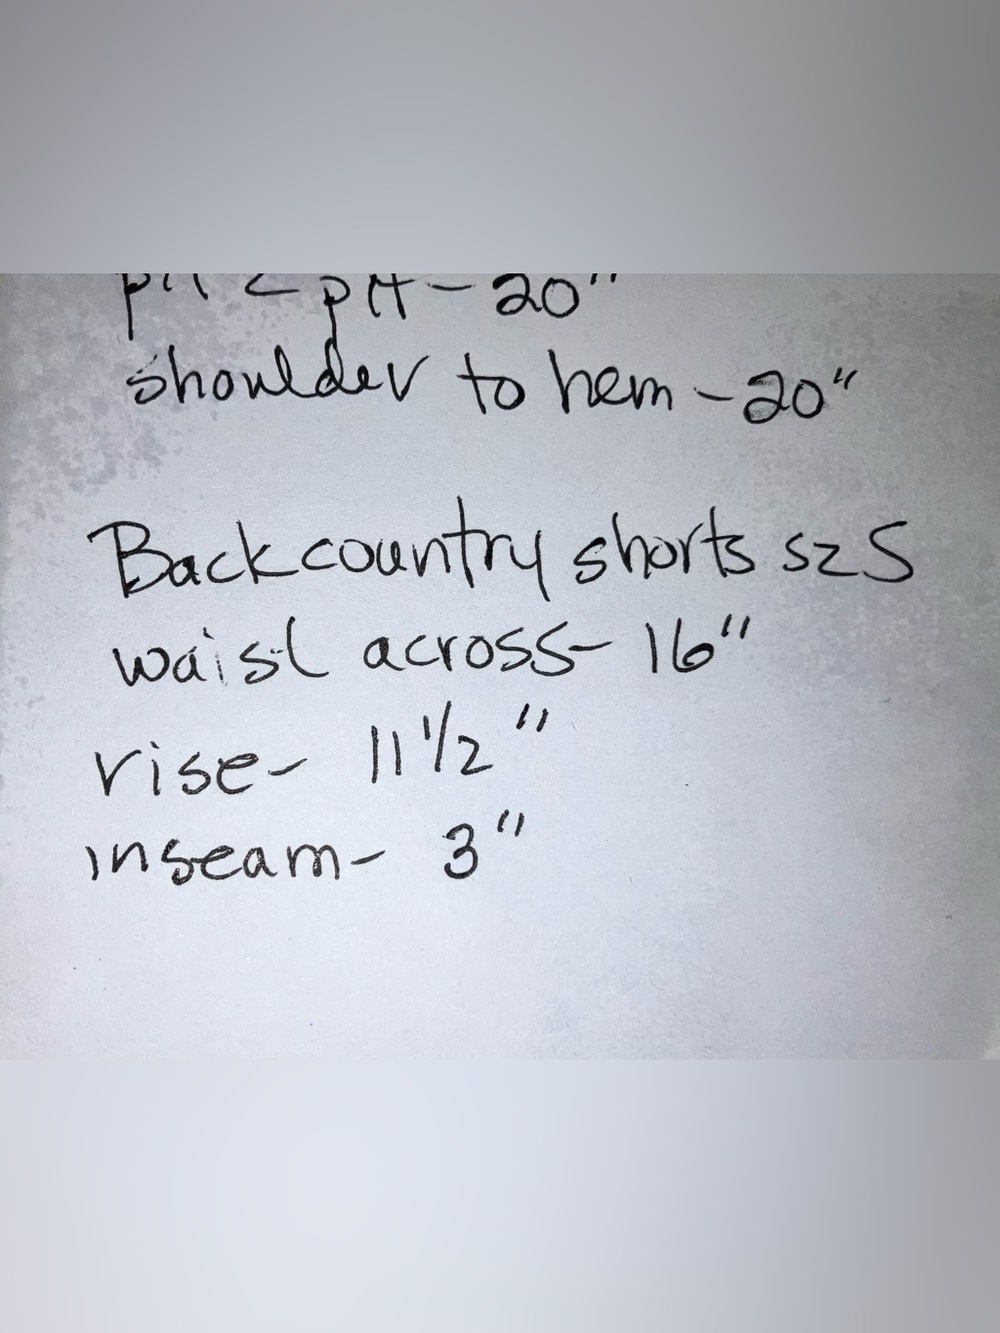 pit 2 pit - 20"
shoulder to hem - 20"
Backcountry shorts sz S
waist across - 16"
rise - 11 1/2"
inseam - 3"